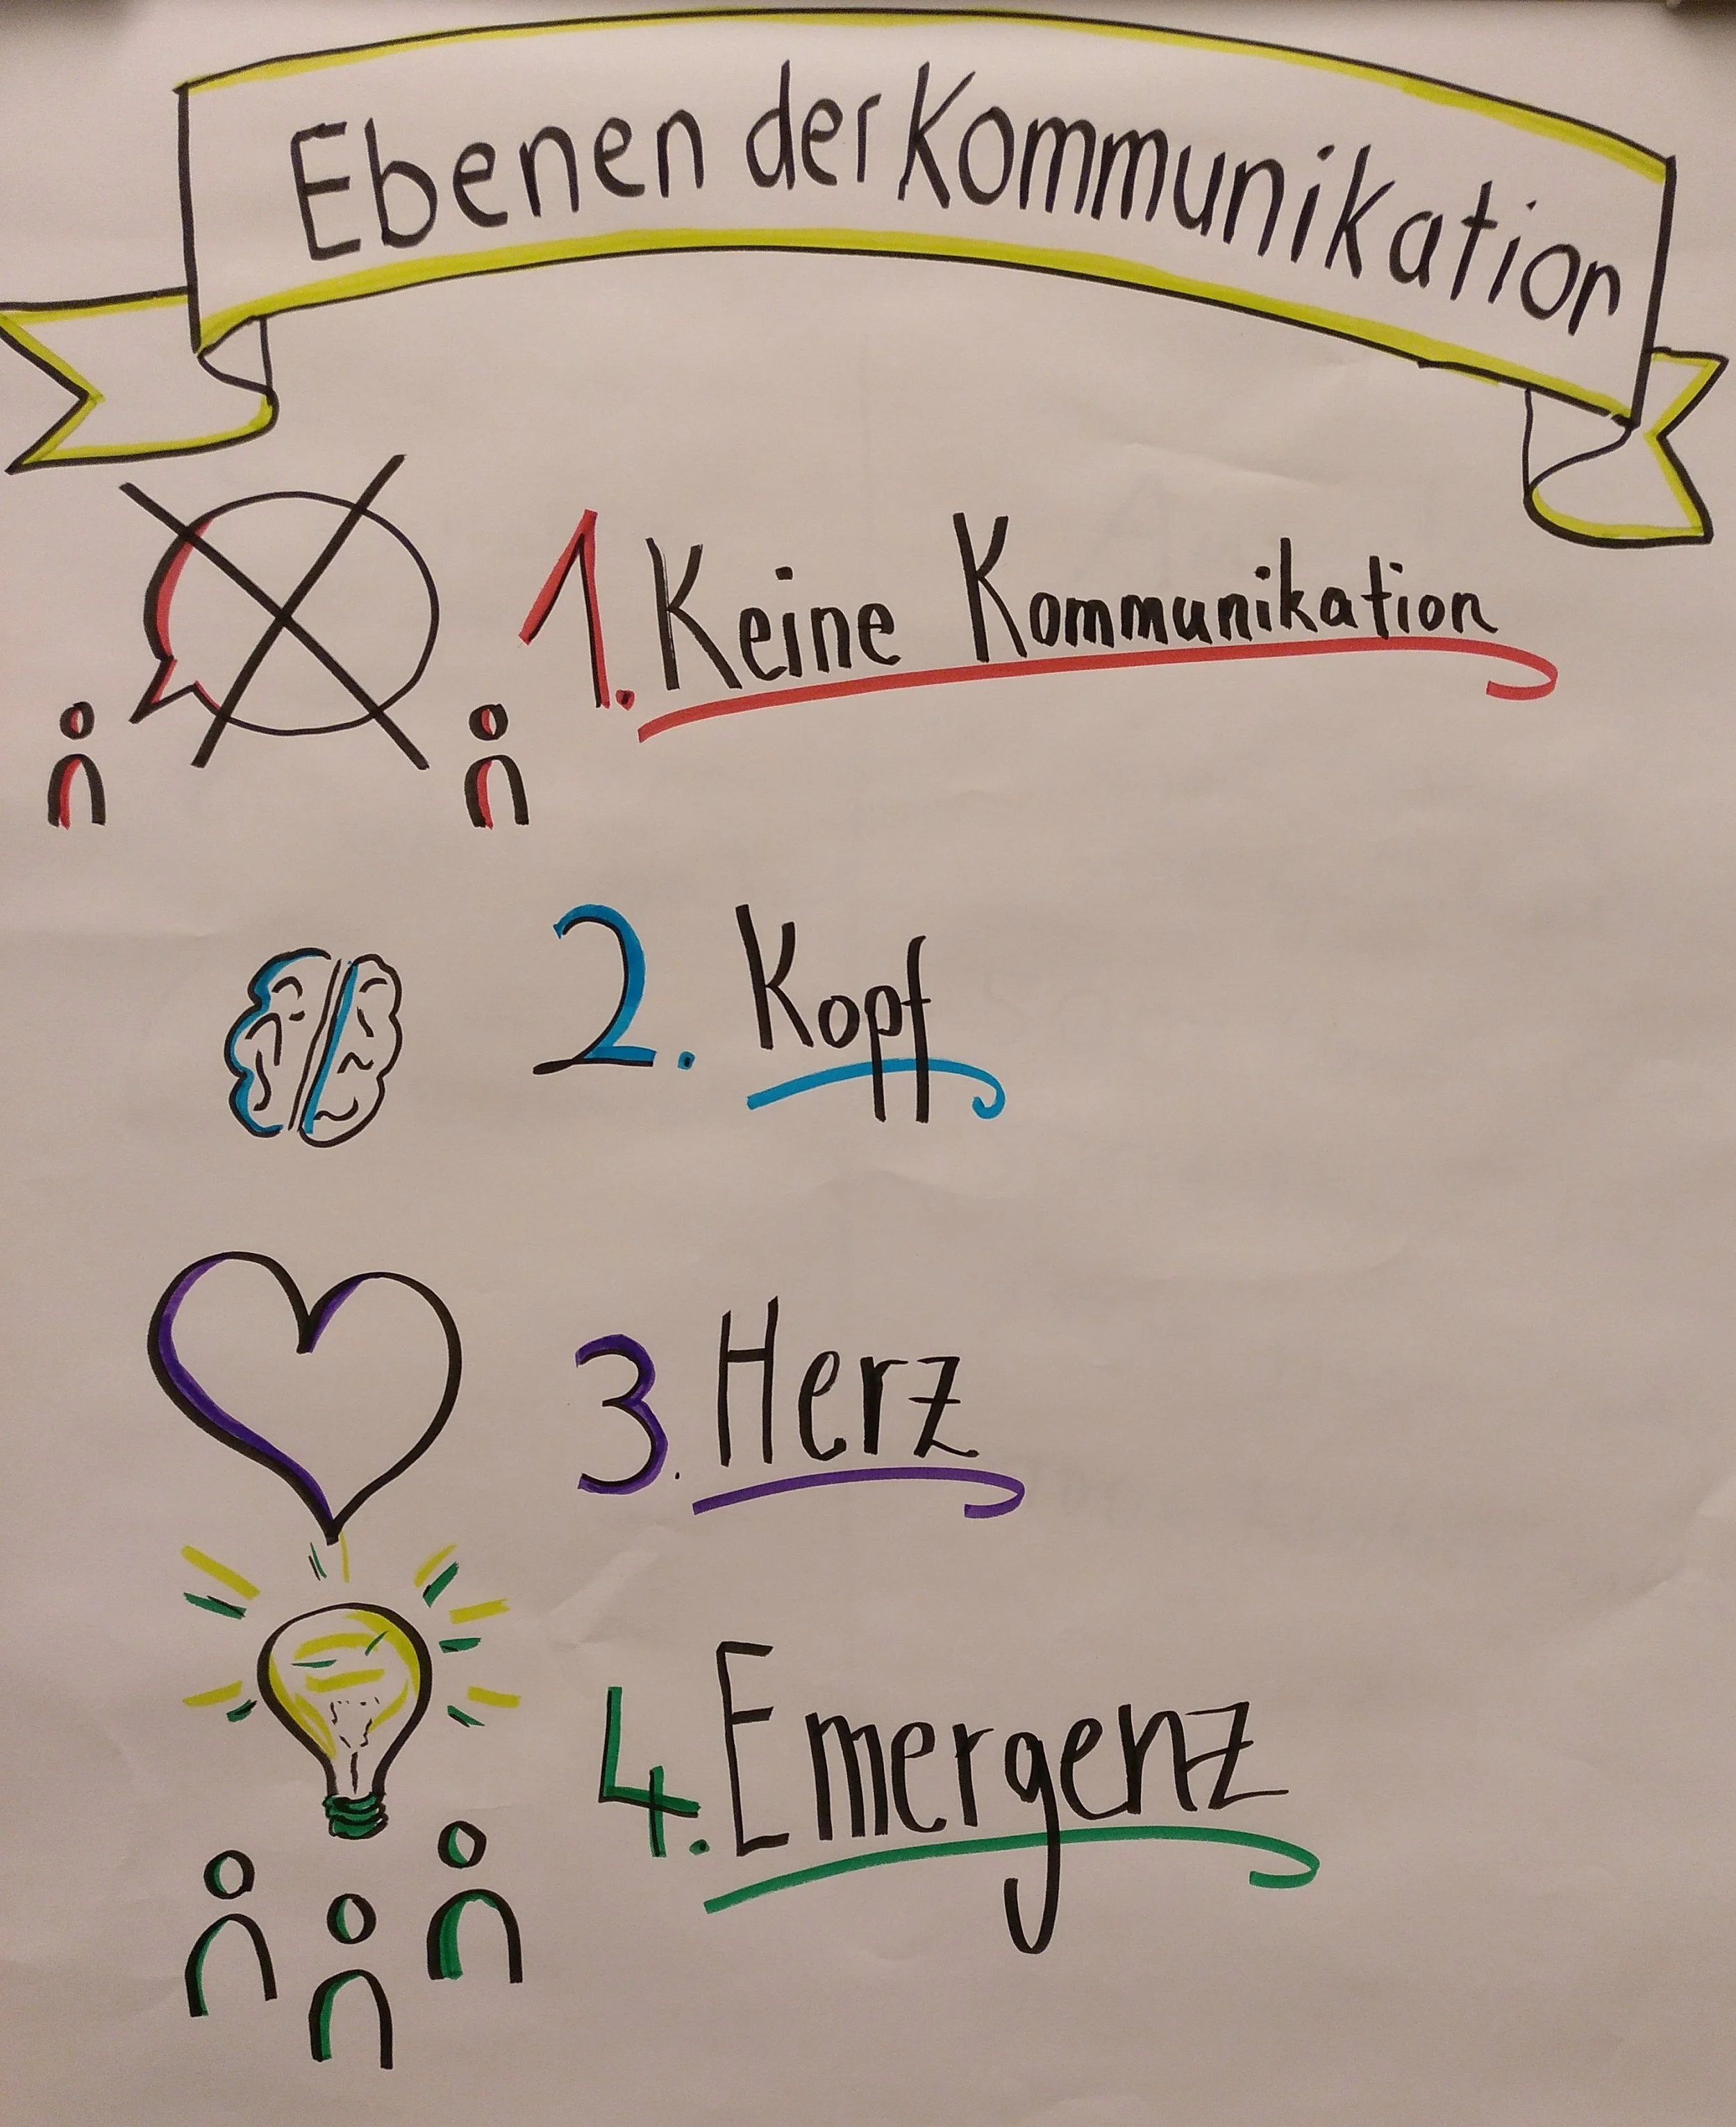 Ebenen der Kommunikation
1. Keine Kommunikation
2. Kopf
3. Herz
4. Emergenz